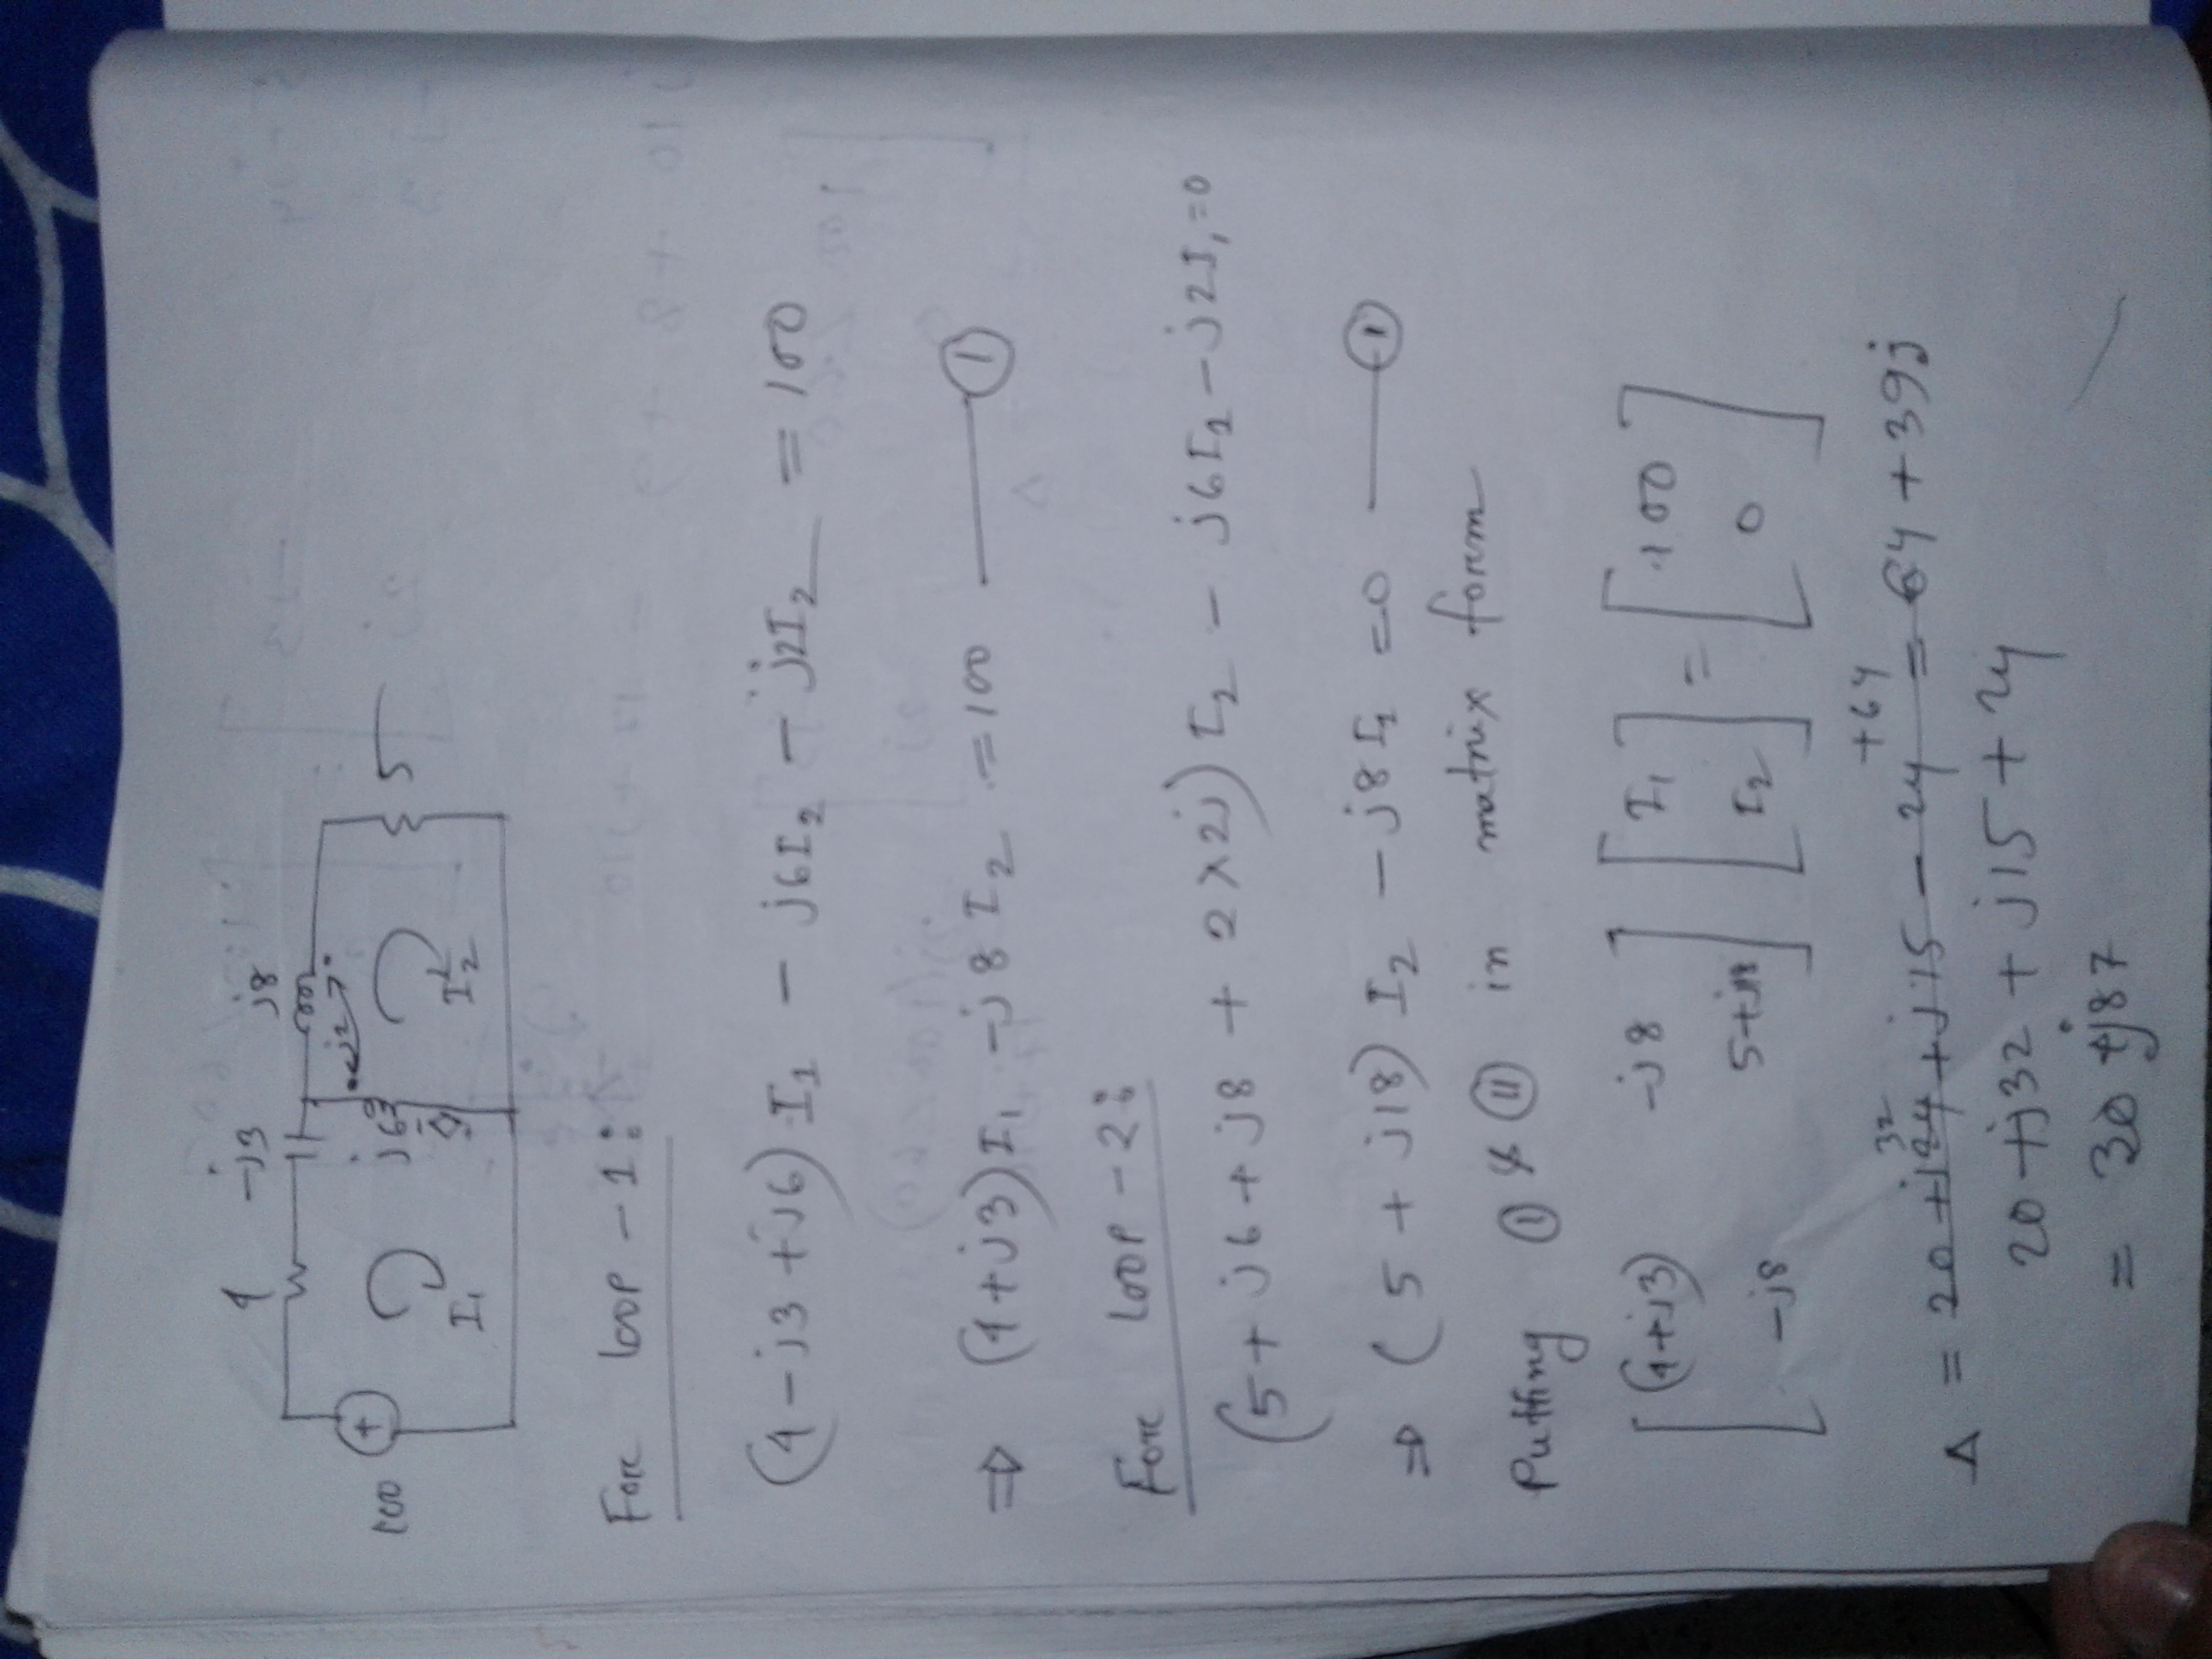 4 -j3 j8
100 + j6 j2 5
I₁ I₂
Forc loop - 1:
(4 - j3 + j6) I₁ - j6I₂ - j2I₂ = 100
⇒ (4+j3) I₁ - j8 I₂ = 100 —— Ⓘ
Forc Loop - 2:
(5 + j6 + j8 + 2×2j) I₂ - j6I₁ - j2I₁ = 0
⇒ (5 + j18) I₂ - j8 I₁ = 0 —— Ⓘ
Putting Ⓘ & ⓘⓘ in matrix forcm
[(4+j3) -j8] [I₁] = [100]
[-j8 5+j18] [I₂] [0]
32 +64
Δ = 20 + j24 + j15 - 24 = 64 + 39j
20 + j32 + j15 + 24
= 30 + j87